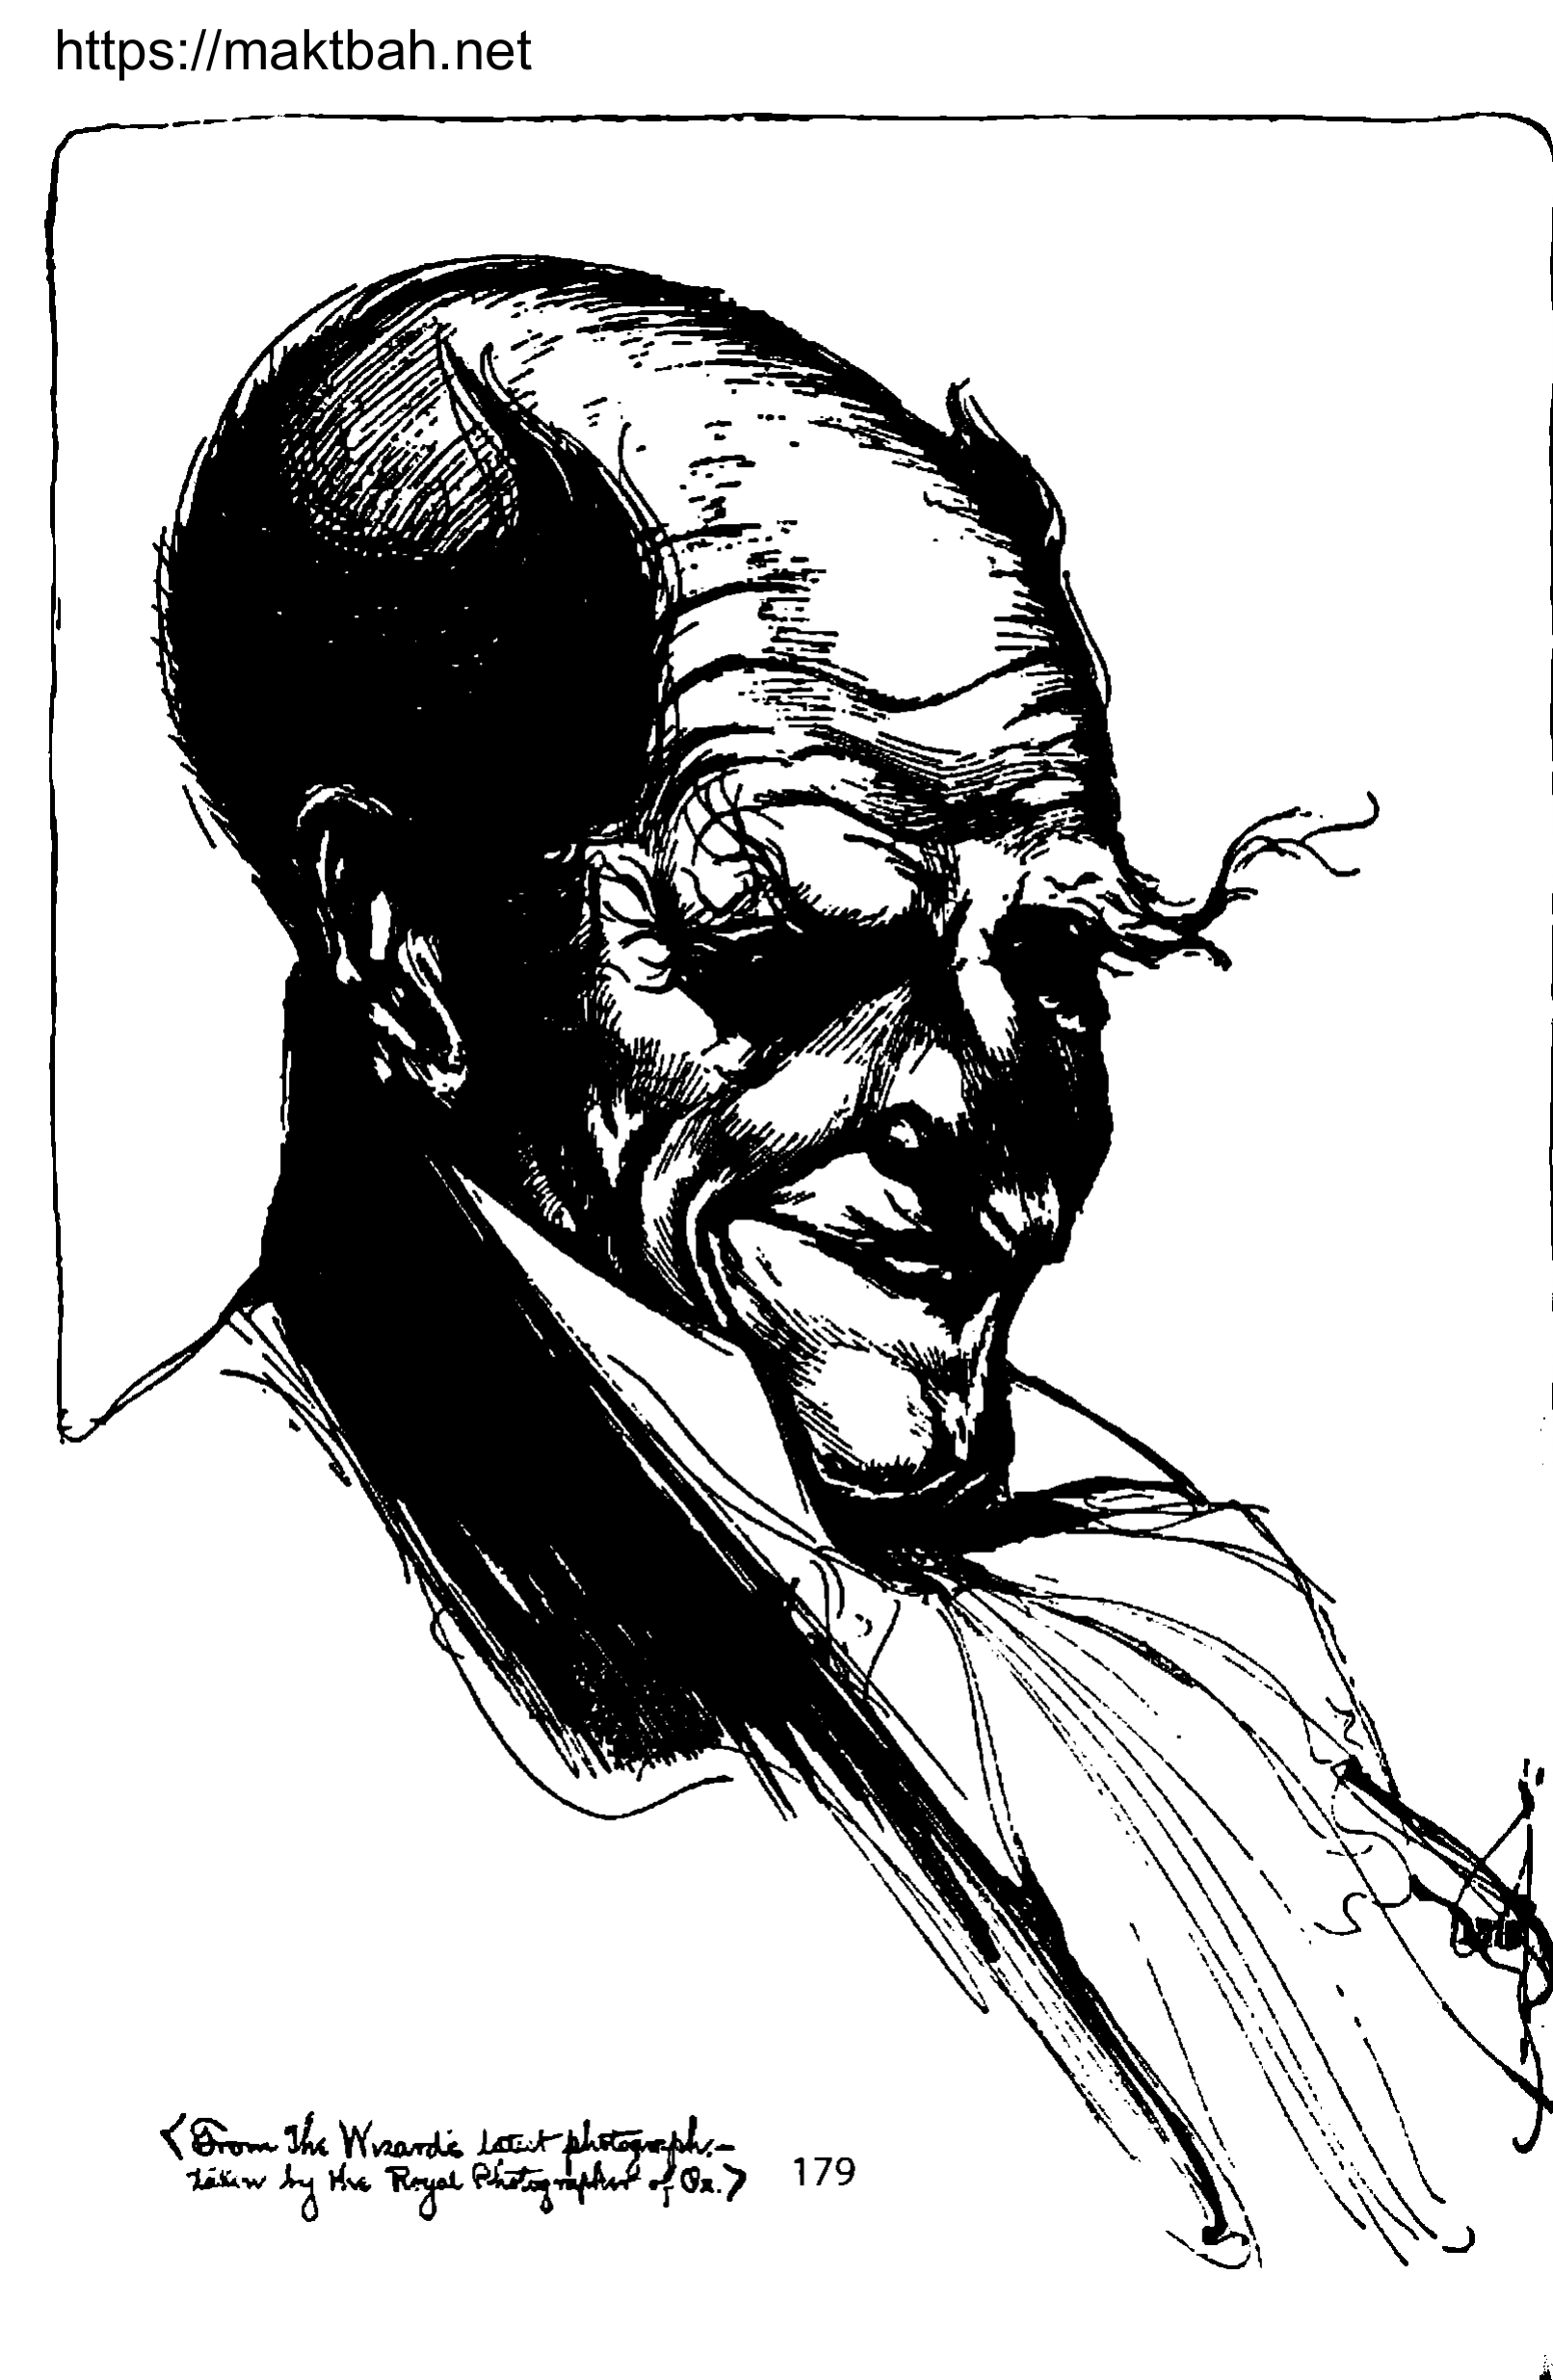 https://maktbah.net
<From The Wizard's latest photograph.—
taken by the Royal Photographer of Oz.>
179